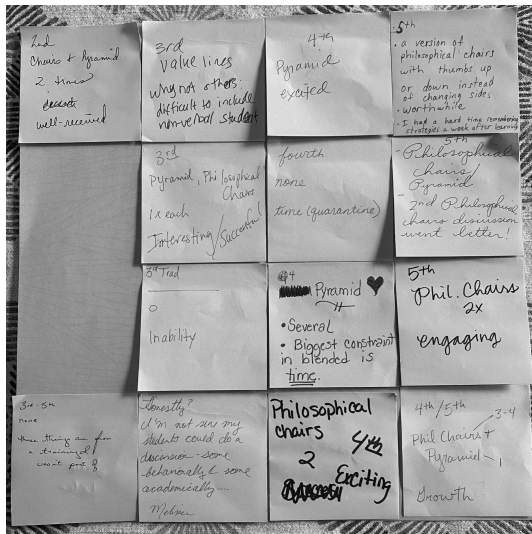 2nd
Chairs & Pyramid
2 times
well-received
3rd
value lines
why not others:
difficult to include
non-verbal student
4th
Pyramid
excited
5th
• a version of
philosophical chairs
with thumbs up
or down instead
of changing sides
• worthwhile
• I had a hard time remembering
strategies a week after learning
3rd
Pyramid, Philosophical
Chairs
1x each
Interesting/Successful
fourth
none
time (quarantine)
5th
- Philosophical
chairs/
Pyramid
- 2nd Philosophical
chairs discussion
went better!
3rd Trad
0
Inability
#4
Pyramid ♥
• Several
• Biggest constraint
in blended is
time.
5th
Phil. Chairs
2x
engaging
3rd-5th
none
these things are from
a training I
wasn't part of
Honestly?
I'm not sure my
students could do a
discussion - some
behaviorally & some
academically...
Philosophical
chairs
4th
2
Exciting
4th/5th
3-4
Phil Chairs &
Pyramid - 1
Growth